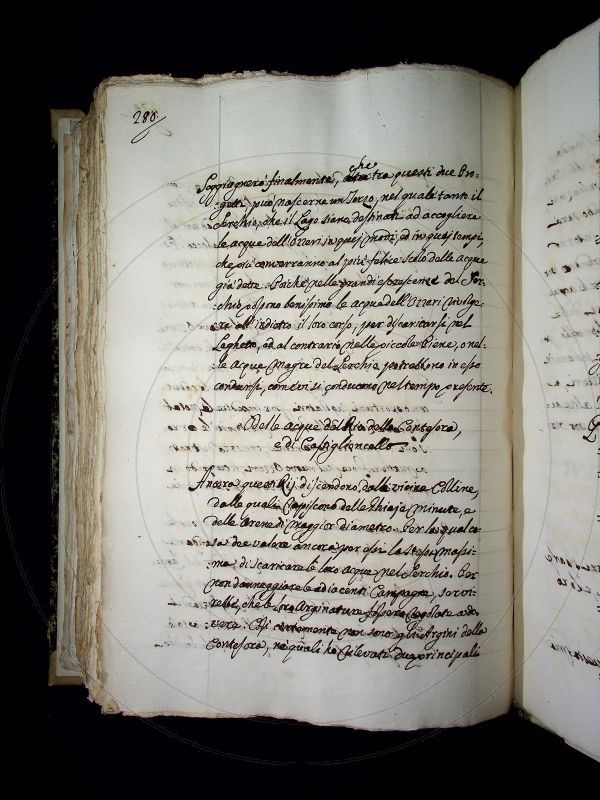 280.
che
Soggiagnerò finalmente, tra questi due Pro-
getti può nascerne un Terzo, nel quale tanto il
Serchio, che il Lago siano destinati ad accogliere
le acque dell'Ozzeri in quei modi, ed in quei tempi,
che più converranno al più felice scolo delle acque
già dette. Poiche nelle grandi escrescenze del Ser-
chio possono benissimo le acque dell'Ozzeri rivolge-
re all'indietro il loro corso, per discaricarsi nel
Laghetto, ed al contrario nelle piccole Piene, o nel-
le acque Magre del Serchio potrebbono in esso
condursi, come vi si conducono nel tempo presente.
Delle acque del Rio della Contesora,
e di Castiglioncello
Ancora questi Rij discendono dalle vicine Colline,
dalle quali rapiscono delle Ghiaje minute, e
delle Arene di maggior diametro. Per la qual co-
sa dee valere ancora per essi la stessa massi-
ma di scaricare le loro acque nel Serchio. Per
non danneggiare le adiacenti Campagne, servi-
rebbe, che le loro Arginature fossero regolate a do-
vere. Così certamente non sono gli Argini della
Contesora, ne quali ho rilevati due principali